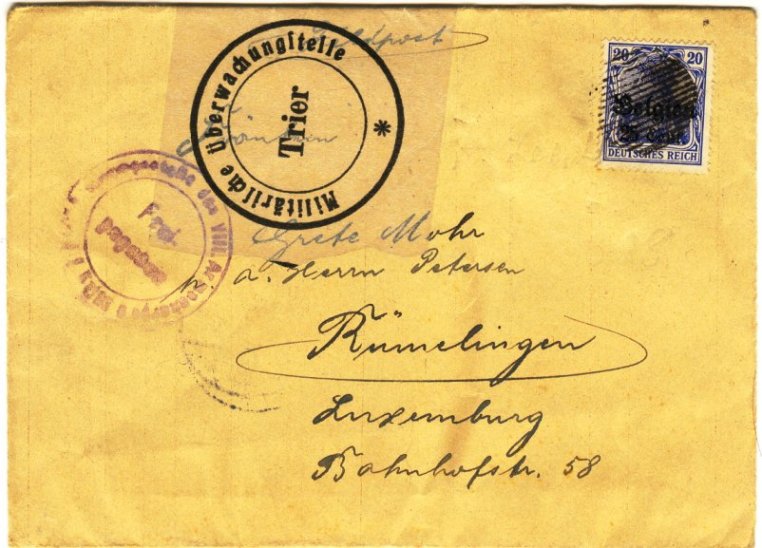 Feldpost
20 20
Belgien
25 Cent.
DEUTSCHES REICH
Militärische Überwachungsstelle
Trier
*
des VIII. Armeekorps
Freigegeben
Grete Mohr
p. a. Herrn Petersen
Rümelingen
Luxemburg
Bahnhofstr. 58